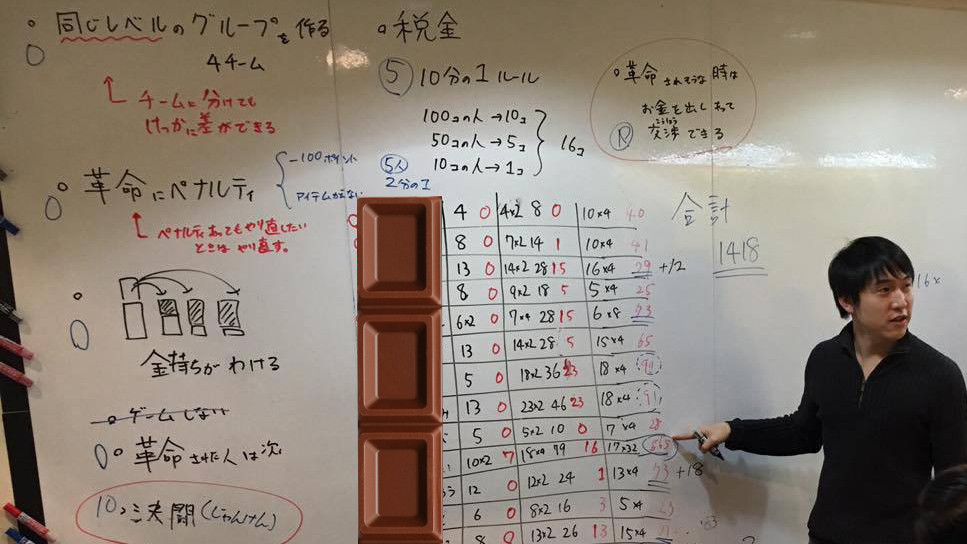 同じレベルのグループを作る
4チーム
チームに分けても
けっかに差ができる
革命にペナルティ
-100ポイント
アイテムかえない
ペナルティあってもやり直したい
ときは やり直す。
金持ちが わける
ゲームしない
革命 された人は次
10
(じゃんけん)
税金
⑤ 10分の1ルール
100コの人→10コ
50コの人→5コ
10コの人→1コ
16コ
5人
2分の1
革命 されそうな 時は
お金を出しあって
こうしょう
交渉できる
合計
1418
4 0 4×2 8 0 10×4 40
8 0 7×2 14 1 10×4 41
13 0 14×2 28 15 16×4 29 +12
8 0 9×2 18 5 5×4 25
6×2 0 7×4 28 15 6×8 23
13 0 14×2 28 5 15×4 65
5 0 18×2 36 23 18×4 91
13 0 23×2 46 23 18×4 91
5 0 5×2 10 0 7×4 28
10×2 7 18×4 79 16 17×32 565
12 0 12×2 24 1 13×4 +18
6 0 8×2 16 3 5×4
8 0 13×2 26 13 15×4
16×